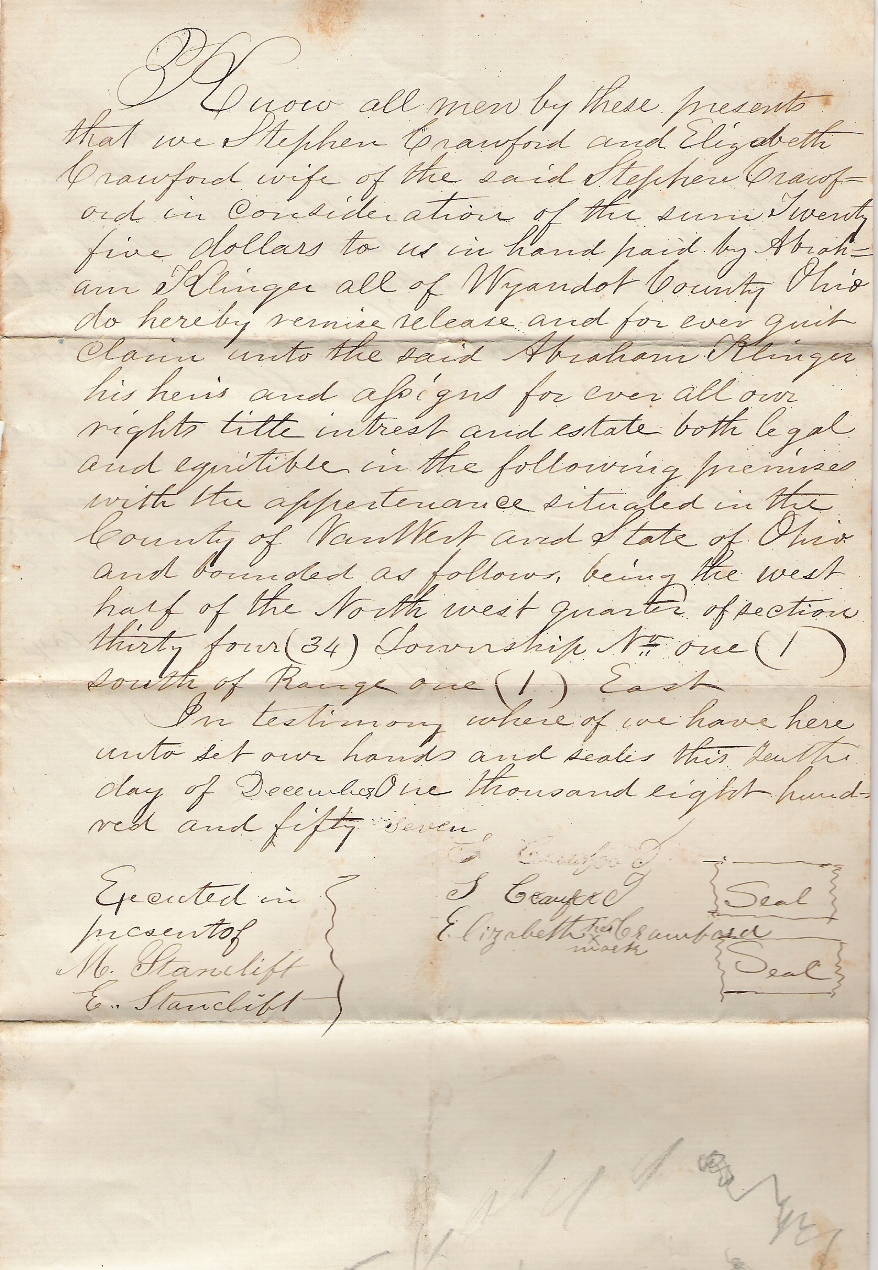 Know all men by these presents
that we Stephen Crawford and Elizabeth
Crawford wife of the said Stephen Crawf=
ord in consideration of the sum Twenty
five dollars to us in hand paid by Abrah=
am Klinger all of Wyandot County Ohio
do hereby remise release and for ever quit
claim unto the said Abraham Klinger
his heirs and assigns for ever all our
rights title intrest and estate both legal
and equitible in the following premises
with the appertenance situated in the
County of VanWert and State of Ohio
and bounded as follows, being the west
half of the North west quarter of section
thirty four (34) Township No one (1)
south of Range one (1) East
In testimony where of we have here
unto set our hands and seales this tenth
day of December One thousand eight hund=
red and fifty seven,
Executed in
presentof
M. Stanclift
E. Stanclift
S Crawford
Elizabeth her Crawford
x
mark
Seal
Seal